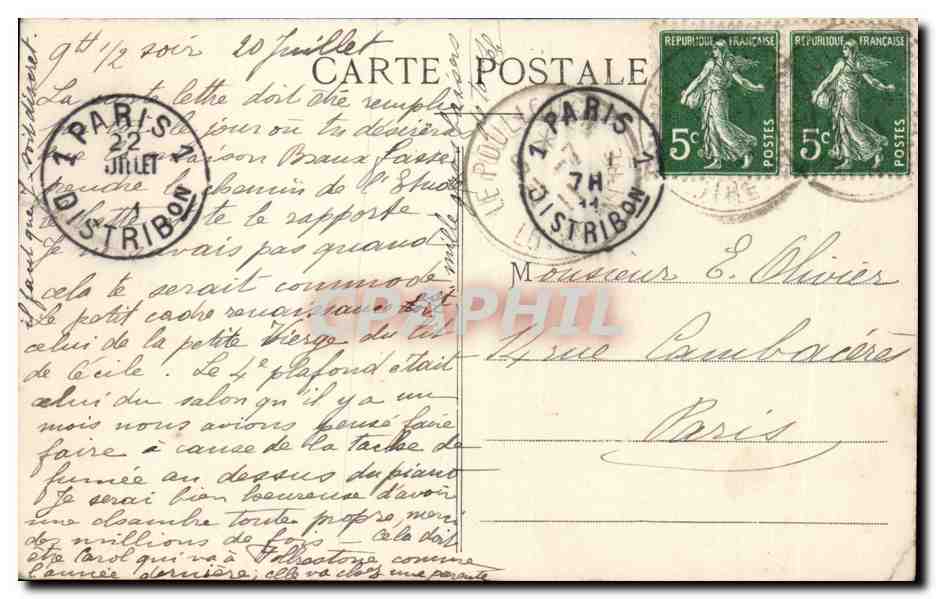 9h 1/2 soir 20 Juillet
CARTE POSTALE
La lettre doit être remplie
le jour où tu désireras
que la maison Beaux fasse
prendre le chemin de l'Etude
te le rapporte.
Je ne savais pas quand
cela te serait commode
Le petit cadre renaissance est
celui de la petite Vierge du lit
de Cécile. Le 4e plafond était
celui du salon qu'il y a un
mois nous avions pensé faire
faire à cause de la tache de
fumée au dessus du piano
Je serai bien heureuse d'avoir
une chambre toute propre, merci
des millions de fois — Cela doit
être Carol qui va à Folkestone comme
l'année dernière; elle va chez une parente
il faut que soit discret.
mille
Monsieur E. Olivier
14 rue Cambacérès
Paris
RÉPUBLIQUE FRANÇAISE
5c POSTES
RÉPUBLIQUE FRANÇAISE
5c POSTES
1 PARIS 1
22
JUILLET
DISTRIBON
LE POULI
LOIRE
1 PARIS 1
7H
11
DISTRIBON
CPAPHIL